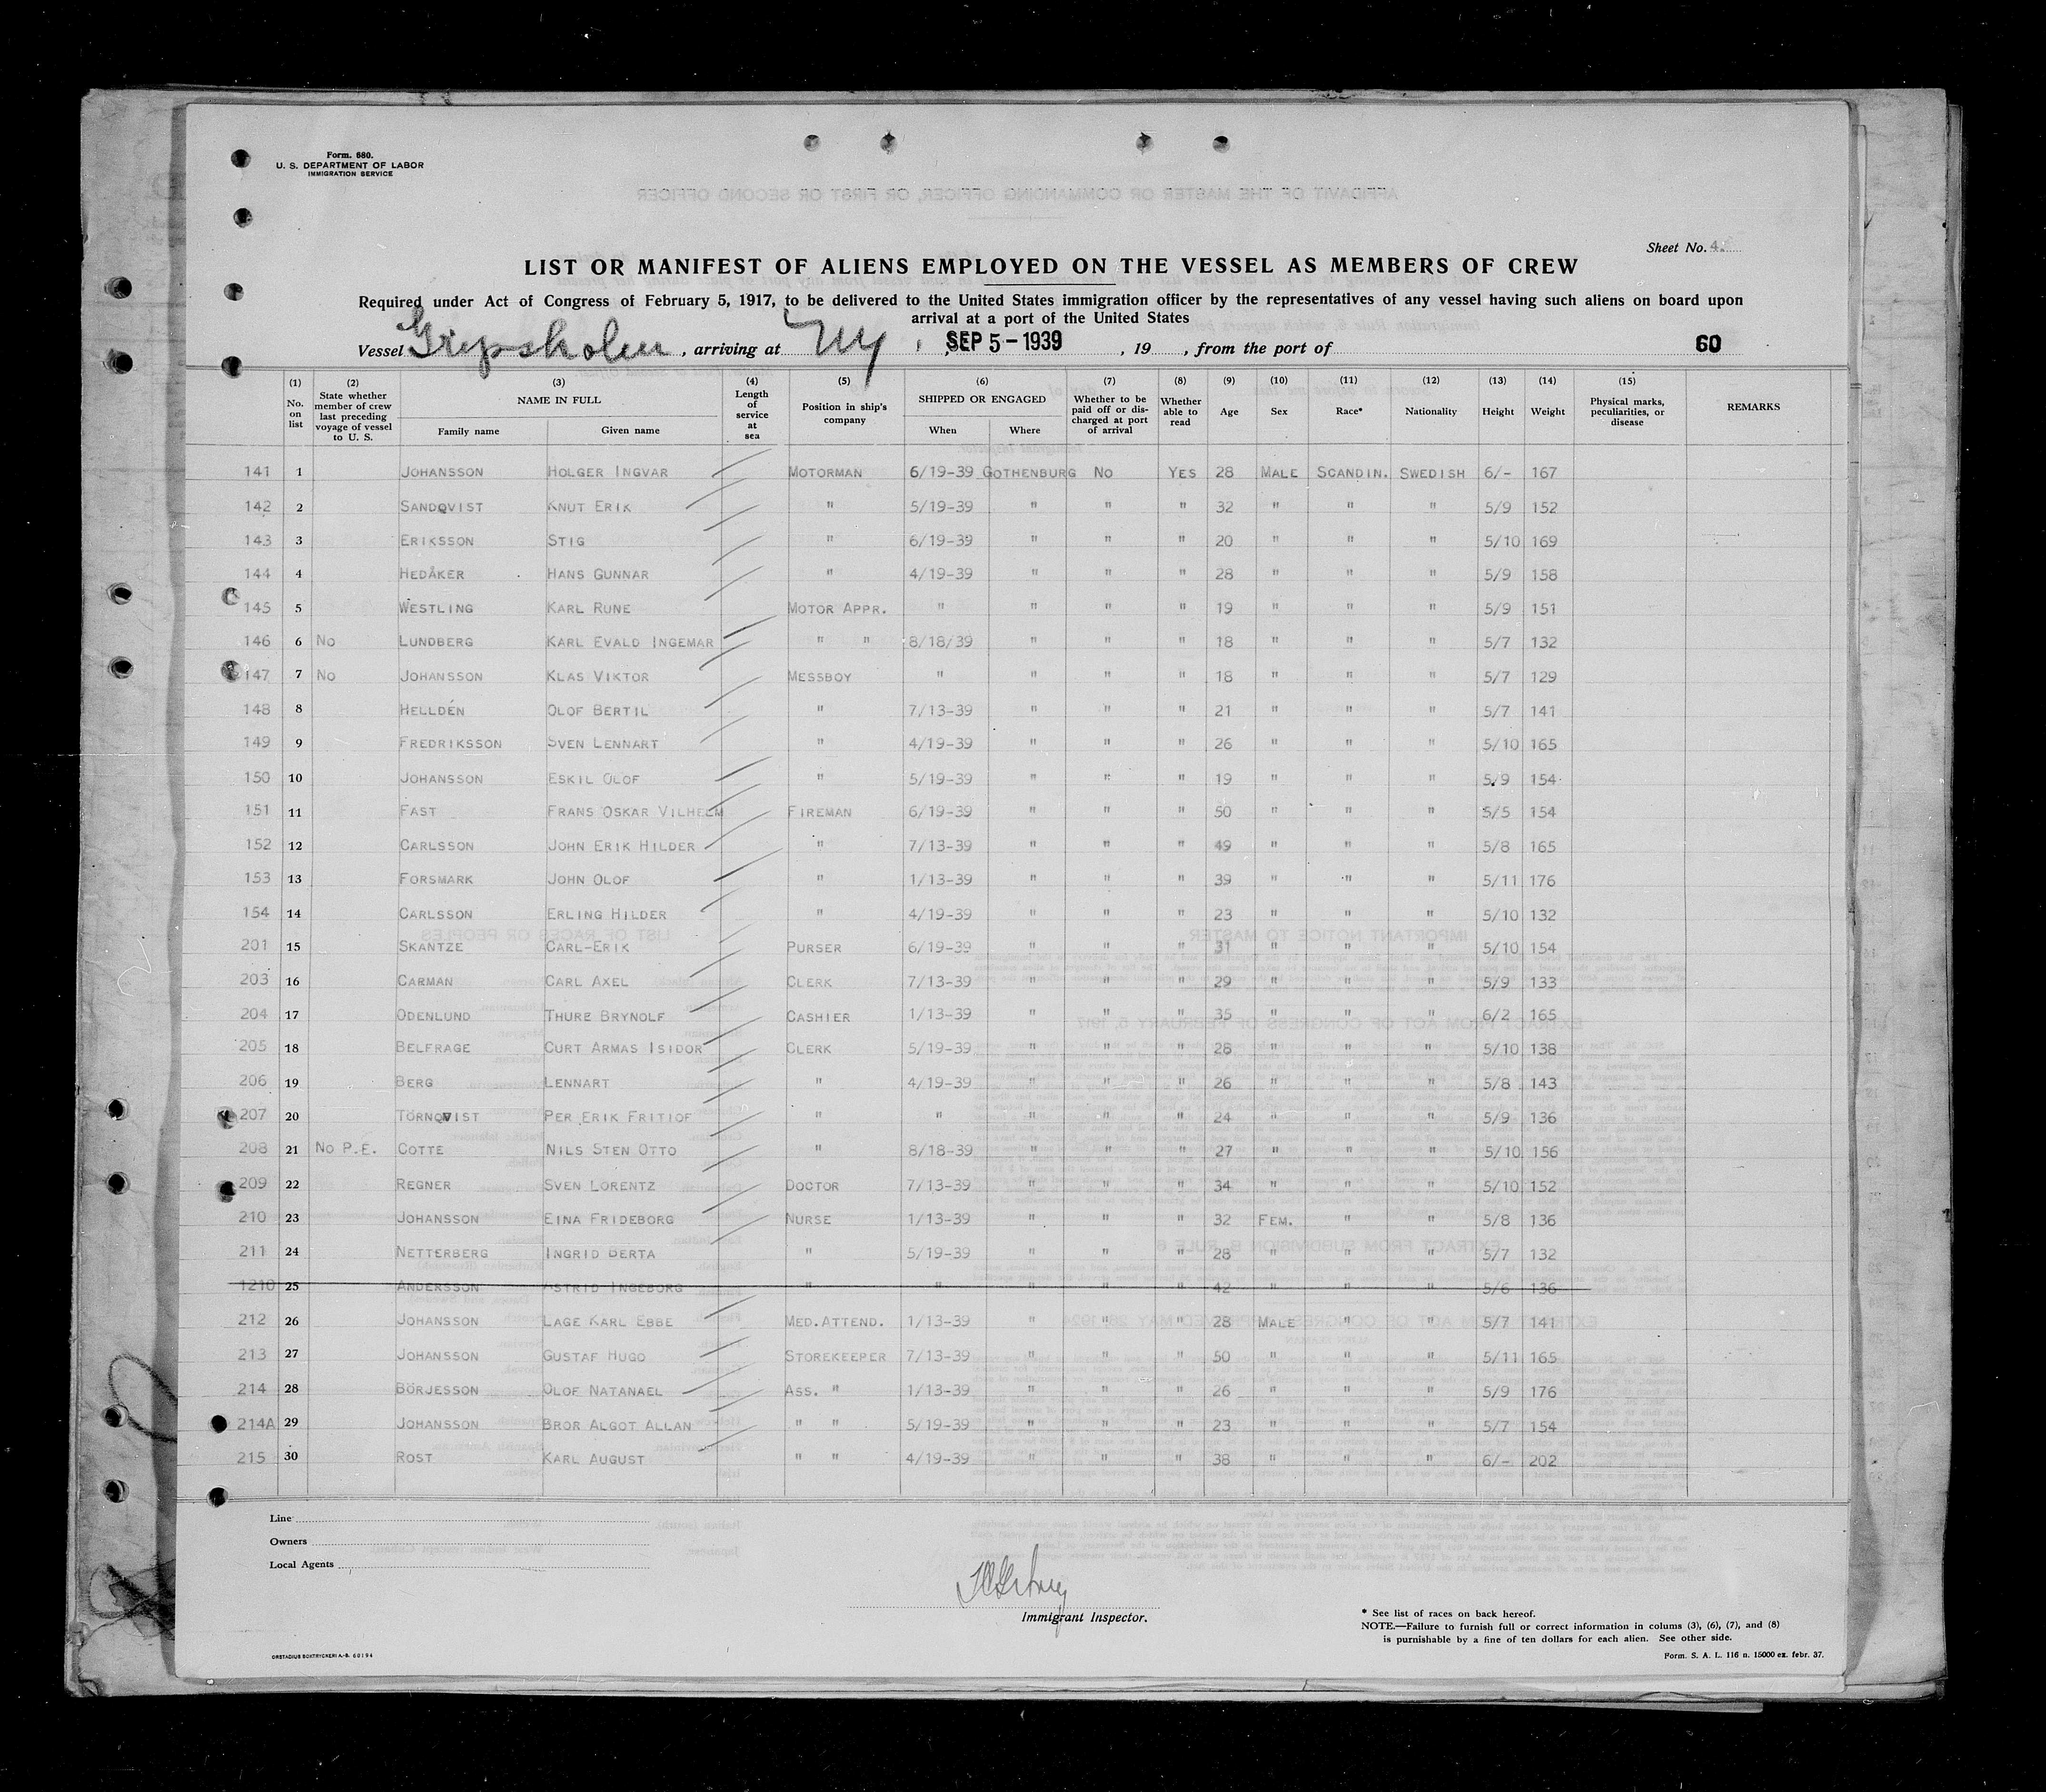 Form. 680.
U. S. DEPARTMENT OF LABOR
IMMIGRATION SERVICE
Sheet No. 4.
LIST OR MANIFEST OF ALIENS EMPLOYED ON THE VESSEL AS MEMBERS OF CREW
Required under Act of Congress of February 5, 1917, to be delivered to the United States immigration officer by the representatives of any vessel having such aliens on board upon
arrival at a port of the United States
Vessel Gripsholm, arriving at NY, SEP 5 - 1939, 19, from the port of 60
(1) No. on list (2) State whether member of crew last preceding voyage of vessel to U. S. (3) NAME IN FULL Family name Given name (4) Length of service at sea (5) Position in ship's company (6) SHIPPED OR ENGAGED When Where (7) Whether to be paid off or discharged at port of arrival (8) Whether able to read (9) Age (10) Sex (11) Race* (12) Nationality (13) Height (14) Weight (15) Physical marks, peculiarities, or disease REMARKS
141 1 JOHANSSON HOLGER INGVAR MOTORMAN 6/19-39 GOTHENBURG NO YES 28 MALE SCANDIN. SWEDISH 6/- 167
142 2 SANDQVIST KNUT ERIK " 5/19-39 " " " 32 " " " 5/9 152
143 3 ERIKSSON STIG " 6/19-39 " " " 20 " " " 5/10 169
144 4 HEDÅKER HANS GUNNAR " 4/19-39 " " " 28 " " " 5/9 158
145 5 WESTLING KARL RUNE MOTOR APPR. " " " " 19 " " " 5/9 151
146 6 NO LUNDBERG KARL EVALD INGEMAR " " 8/18/39 " " " 18 " " " 5/7 132
147 7 NO JOHANSSON KLAS VIKTOR MESSBOY " " " " 18 " " " 5/7 129
148 8 HELLDÉN OLOF BERTIL " 7/13-39 " " " 21 " " " 5/7 141
149 9 FREDRIKSSON SVEN LENNART " 4/19-39 " " " 26 " " " 5/10 165
150 10 JOHANSSON ESKIL OLOF " 5/19-39 " " " 19 " " " 5/9 154
151 11 FAST FRANS OSKAR VILHELM FIREMAN 6/19-39 " " " 50 " " " 5/5 154
152 12 CARLSSON JOHN ERIK HILDER " 7/13-39 " " " 49 " " " 5/8 165
153 13 FORSMARK JOHN OLOF " 1/13-39 " " " 39 " " " 5/11 176
154 14 CARLSSON ERLING HILDER " 4/19-39 " " " 23 " " " 5/10 132
201 15 SKANTZE CARL-ERIK PURSER 6/19-39 " " " 31 " " " 5/10 154
203 16 CARMAN CARL AXEL CLERK 7/13-39 " " " 29 " " " 5/9 133
204 17 ODENLUND THURE BRYNOLF CASHIER 1/13-39 " " " 35 " " " 6/2 165
205 18 BELFRAGE CURT ARMAS ISIDOR CLERK 5/19-39 " " " 28 " " " 5/10 138
206 19 BERG LENNART " 4/19-39 " " " 26 " " " 5/8 143
207 20 TÖRNQVIST PER ERIK FRITIOF " " " " " 24 " " " 5/9 136
208 21 NO P.E. COTTE NILS STEN OTTO " 8/18-39 " " " 27 " " " 5/10 156
209 22 REGNER SVEN LORENTZ DOCTOR 7/13-39 " " " 34 " " " 5/10 152
210 23 JOHANSSON EINA FRIDEBORG NURSE 1/13-39 " " " 32 FEM. " " 5/8 136
211 24 NETTERBERG INGRID BERTA " 5/19-39 " " " 28 " " " 5/7 132
1210 25 ANDERSSON ASTRID INGEBORG " " " " " 42 " " " 5/6 136
212 26 JOHANSSON LAGE KARL EBBE MED.ATTEND. 1/13-39 " " " 28 MALE " " 5/7 141
213 27 JOHANSSON GUSTAF HUGO STOREKEEPER 7/13-39 " " " 50 " " " 5/11 165
214 28 BÖRJESSON OLOF NATANAEL ASS. " 1/13-39 " " " 26 " " " 5/9 176
214A 29 JOHANSSON BROR ALGOT ALLAN " " 5/19-39 " " " 23 " " " 5/7 154
215 30 ROST KARL AUGUST " " 4/19-39 " " " 38 " " " 6/- 202
Line
Owners
Local Agents
Immigrant Inspector.
* See list of races on back hereof.
NOTE.—Failure to furnish full or correct information in colums (3), (6), (7), and (8)
is punishable by a fine of ten dollars for each alien. See other side.
ORSTADIUS BOKTRYCKERI A.-B. 60194
Form. S. A. L. 116 n. 15000 ex. febr. 37.